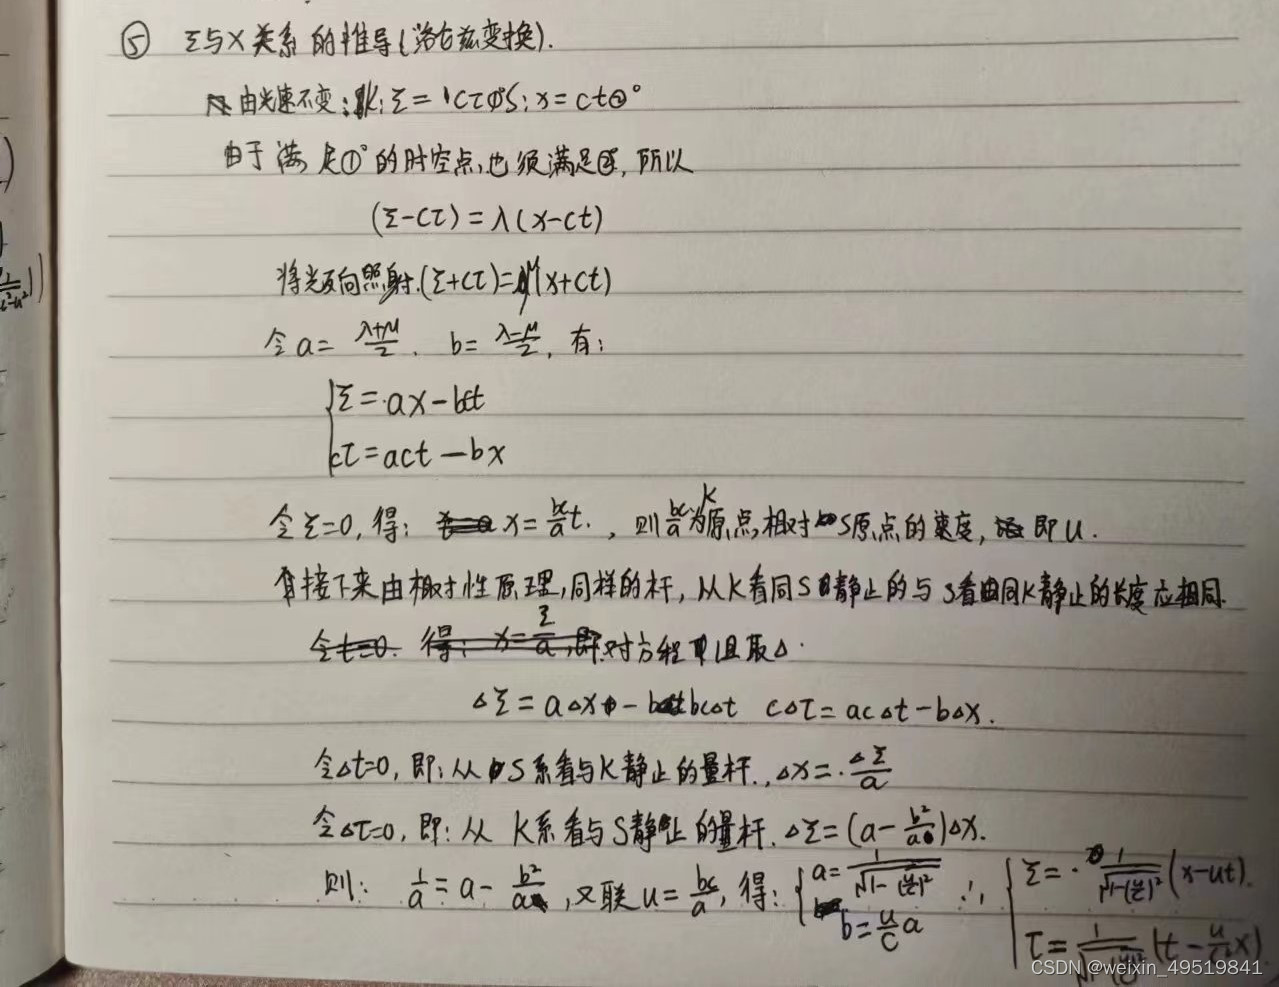 ⑤ Σ与X关系的推导(洛仑兹变换).
由光速不变: K: Σ = cτ①° S: x = ct②°
由于满足①°的时空点,也须满足②°,所以
(Σ-cτ) = λ(x-ct)
将光反向照射.(Σ+cτ)=μ(x+ct)
令a= (λ+μ)/2 . b= (λ-μ)/2 , 有:
Σ = ax - bct
cτ = act - bx
令Σ=0, 得: x = (bc/a)t. , 则 bc/a 为K原点相对S原点的速度, 即u.
接下来由相对性原理,同样的杆, 从K看同S静止的与S看同K静止的长度应相同.
对方程组取△.
△Σ = a△x - bc△t c△τ = ac△t - b△x.
令△t=0, 即: 从S系看与K静止的量杆., △x = △Σ/a
令△τ=0, 即: 从K系看与S静止的量杆. △Σ = (a - b²/a)△x.
则: 1/a = a - b²/a , 又联u = bc/a , 得: { a = 1/√(1-(u/c)²) ∴ { Σ = 1/√(1-(u/c)²) (x-ut).
b = (u/c)a τ = 1/√(1-(u/c)²) (t - (u/c²)x)
CSDN @weixin_49519841